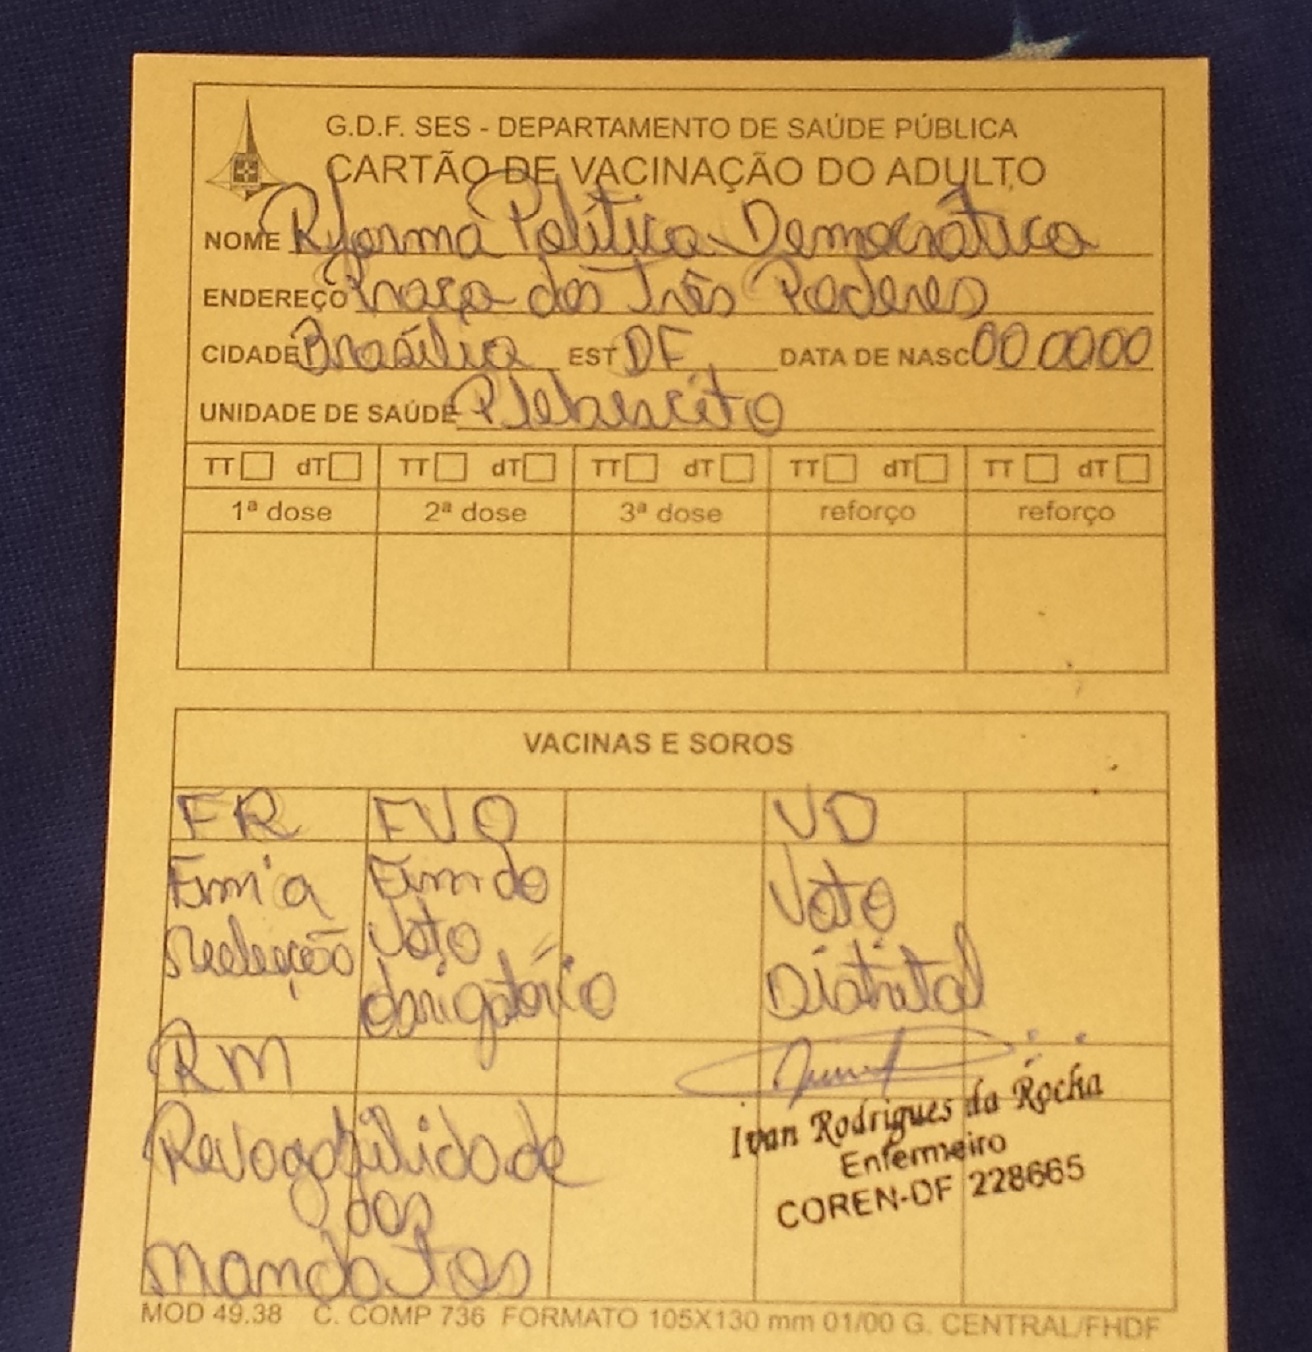 G.D.F. SES - DEPARTAMENTO DE SAÚDE PÚBLICA
CARTÃO DE VACINAÇÃO DO ADULTO
NOME Reforma Política Democrática
ENDEREÇO Praça dos Três Poderes
CIDADE Brasília EST DF DATA DE NASC 00 0000
UNIDADE DE SAÚDE Plebiscito
TT dT TT dT TT dT TT dT TT dT
1ª dose 2ª dose 3ª dose reforço reforço
VACINAS E SOROS
FR FVO VD
Fim a Fim do Voto
reeleição Voto Distrital
obrigatório
RM
Revogabilidade
dos
mandatos
Ivan Rodrigues da Rocha
Enfermeiro
COREN-DF 228665
MOD 49.38 C. COMP 736 FORMATO 105X130 mm 01/00 G. CENTRAL/FHDF